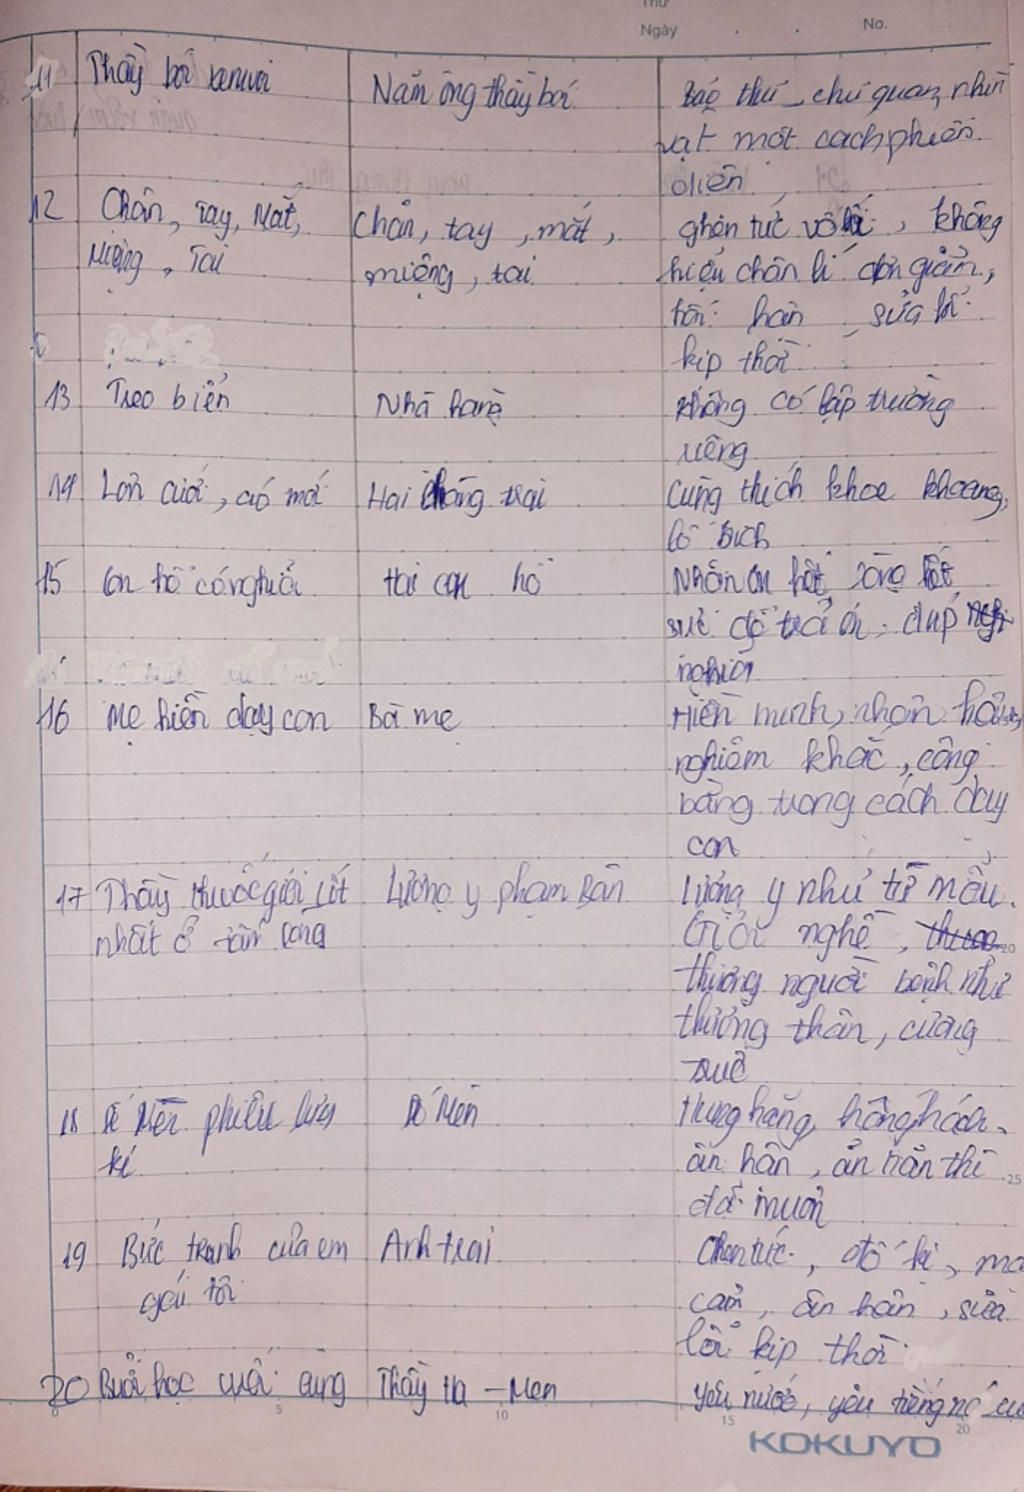 Thứ
Ngày No.
11 Thầy bói xem voi Năm ông thầy bói Bảo thủ, chủ quan, nhìn
vật một cách phiến
diện
12 Chân, Tay, Mắt, Chân, tay, mắt, ghen tức vô lí, không
Miệng, Tai miệng, tai hiểu chân lí đơn giản,
hối hận, sửa lỗi
kịp thời
13 Treo biển Nhà hàng không có lập trường
riêng
14 Lợn cưới, áo mới Hai chàng trai Cùng thích khoe khoang,
lố bịch
15 Con hổ có nghĩa Hai con hổ Nhân hết lòng hết
sức để trả ơn, đáp
nghĩa
16 Mẹ hiền dạy con Bà mẹ Hiền minh, nhân hậu,
nghiêm khắc, công
bằng trong cách dạy
con
17 Thầy thuốc giỏi cốt Lương y phạm Bân Lương y như từ mẫu.
nhất ở tấm lòng Giỏi nghề,
thương người bệnh như
thương thân, cương
quề
18 Dế Mèn phiêu lưu Dế Mèn Hung hăng, hống hách,
kí ân hận, ăn năn thì
đã muộn
19 Bức tranh của em Anh trai Ghen tức, đố kị, mặc
gái tôi cảm, ân hận, sửa
lỗi kịp thời
20 Buổi học cuối cùng Thầy Ha-Men yêu nước, yêu tiếng
20
25
5 10 15 20
KOKUYO